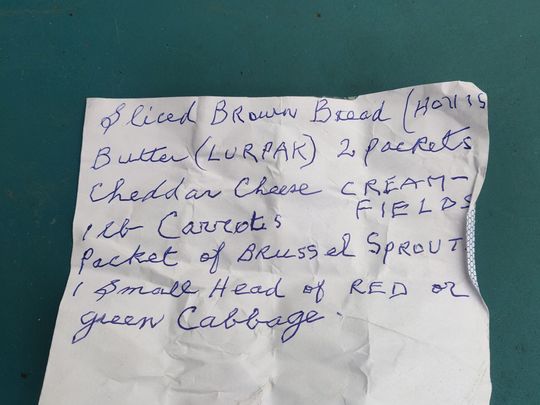 Sliced Brown Bread (HOVIS
Butter (LURPAK) 2 Packets
Cheddar Cheese CREAM-
FIELDS
1 lb Carrots
Packet of BRUSSEL SPROUT
1 Small Head of RED or
green Cabbage.